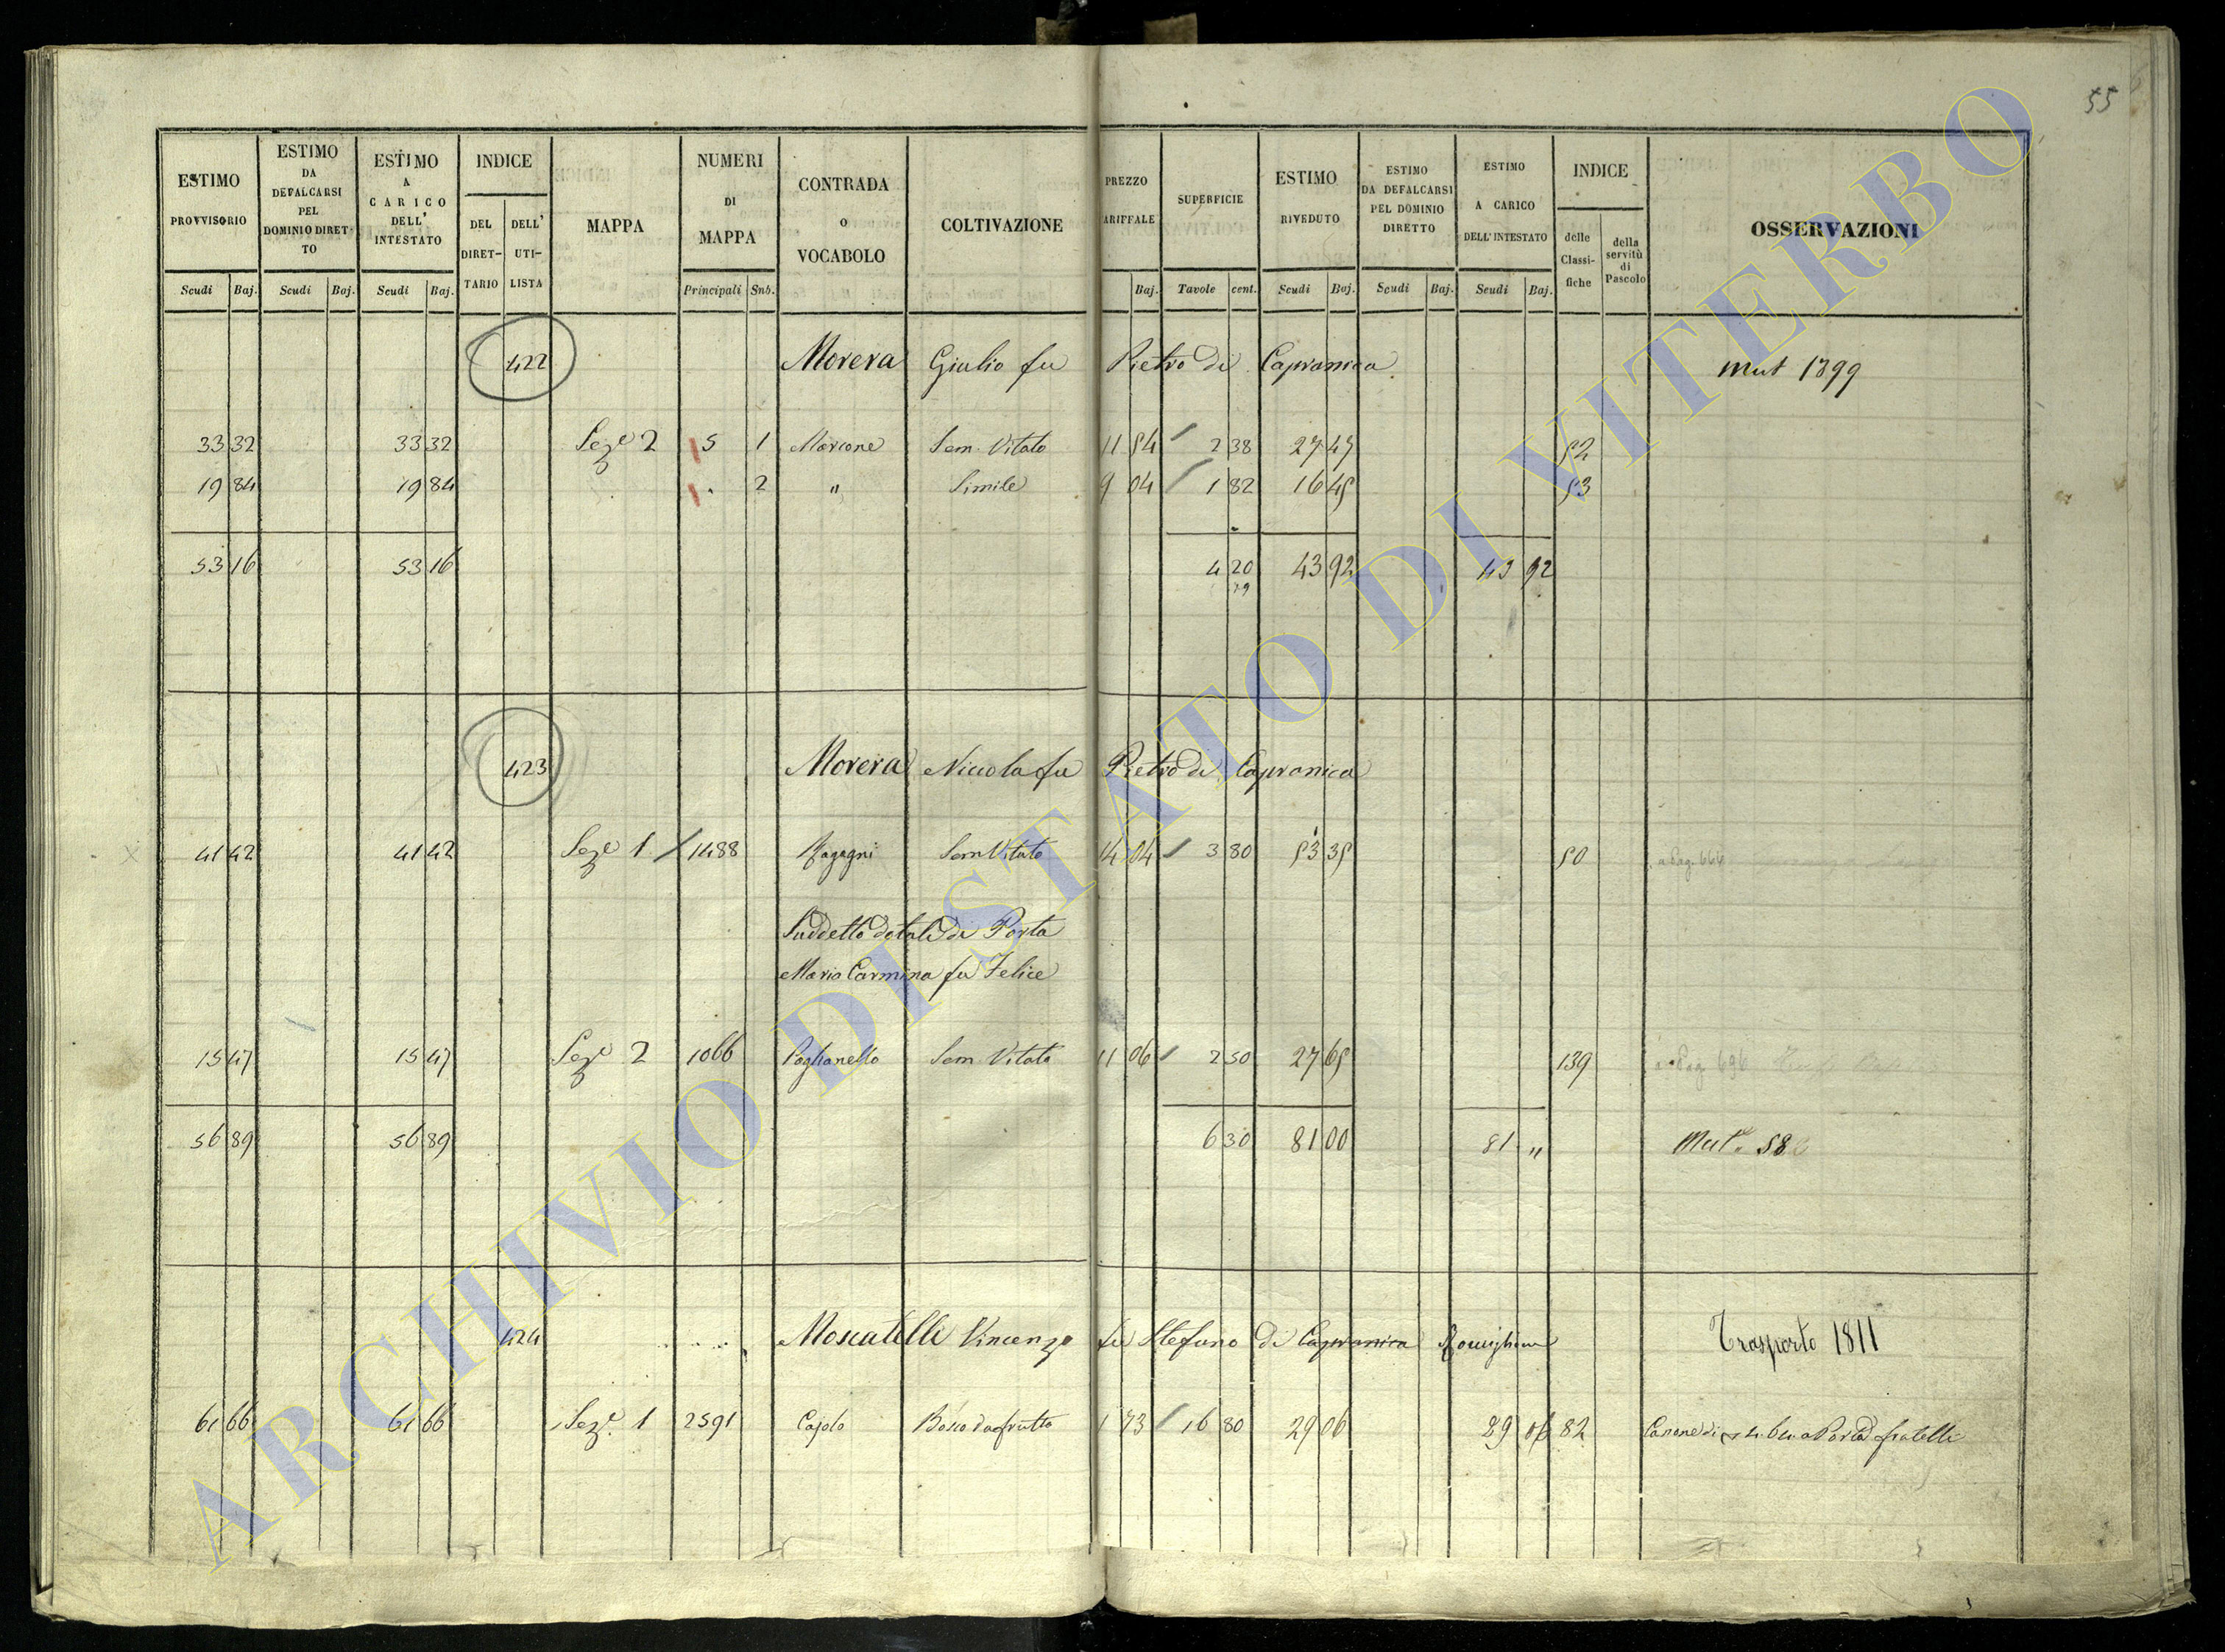 55
ESTIMO PROVVISORIO
ESTIMO DA DEFALCARSI PEL DOMINIO DIRETTO
ESTIMO A CARICO DELL' INTESTATO
INDICE
DEL DIRET-TARIO
DELL' UTI-LISTA
MAPPA
NUMERI DI MAPPA
CONTRADA o VOCABOLO
COLTIVAZIONE
PREZZO ARIFFALE
SUPERFICIE
ESTIMO RIVEDUTO
ESTIMO DA DEFALCARSI PEL DOMINIO DIRETTO
ESTIMO A CARICO DELL'INTESTATO
INDICE
delle Classi-fiche
della servitù di Pascolo
OSSERVAZIONI
Scudi Baj. Scudi Baj. Scudi Baj. Principali Sub. Baj. Tavole cent. Scudi Baj. Scudi Baj. Scudi Baj.
422 Morera Giulio fu Pietro di Capranica mut 1899
33 32 33 32 Seze 2 5 1 Marcone Sem. Vitato 11 54 2 38 27 47 52
19 84 19 84 2 " Simile 9 04 1 82 16 45 53
53 16 53 16 4 20 43 92 43 92
79
423 Morera Niccola fu Pietro di Capranica
41 42 41 42 Seze 1 1488 Sem Vitato 14 04 3 80 53 35 50 a Pag. 664
Suddetto dotale di Porta
Maria Carmina fu Felice
15 47 15 47 Seze 2 1066 Paglianello Sem. Vitato 11 06 2 50 27 65 139 a Pag 696
56 89 56 89 6 30 81 00 81 " Mut. 58
424 Moscatelli Vincenzo fu Stefano di Capranica Ronciglione Trasporto 1811
61 66 61 66 Seze. 1 2591 Cajolo Bosco da frutto 1 73 16 80 29 06 29 06 82 Canone di a Porta fratelli
ARCHIVIO DI STATO DI VITERBO